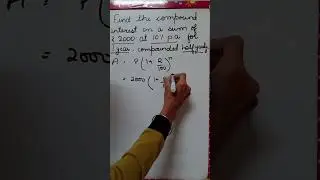 Find the compound
interest on a sum of
₹ 2000 at 10% p.a for
1 year compounded half yearly
A = P(1+ R/100)ⁿ
= 2000 (1+